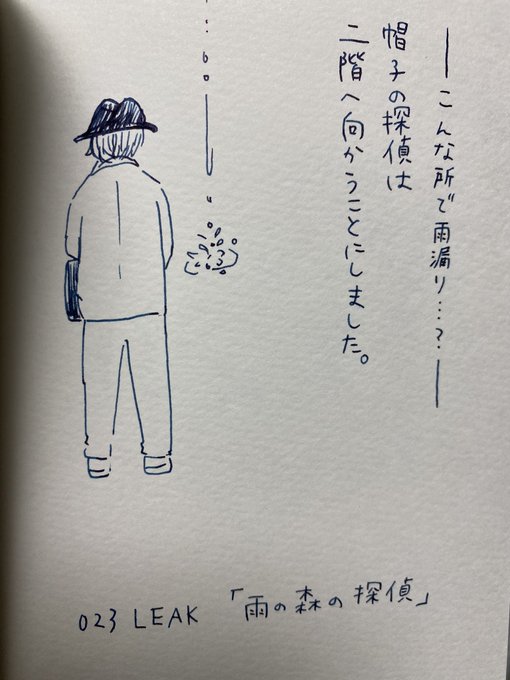 ――こんな所で雨漏り…?――
帽子の探偵は
二階へ向かうことにしました。
023 LEAK 「雨の森の探偵」